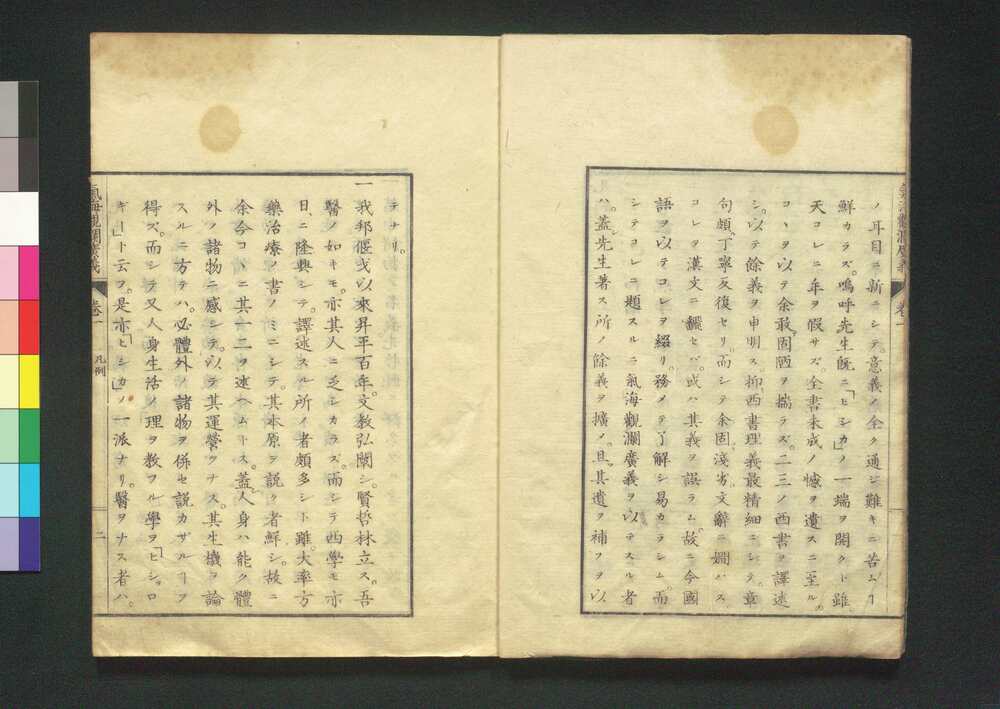 ノ耳目ニ新ニシテ。意義ノ全ク通ジ難キニ苦ムヿ
鮮カラズ。嗚呼先生既ニ「ヒシカ」ノ一端ヲ開クト雖
天コレニ年ヲ假サズ。全書未成ノ憾ヲ遺スニ至ル。
コヽヲ以テ余敢テ固陋ヲ揣ラズ。二三ノ西書ヲ譯述
シ。以テ餘義ヲ申明ス。抑西書理義最精細ニシテ。章
句頗丁寧反復セリ。而シテ余固ヨリ淺劣。文辭ニ嫺ハス
コレヲ漢文ニ飜セバ。或ハ其義ヲ誤ラム。故ニ今國
語ヲ以テコレヲ綴リ。務メテ了解シ易カラシム。而
シテコレニ題スルニ氣海觀瀾廣義ヲ以テスル者
ハ。蓋先生著ス所ノ餘義ヲ擴メ。且其遺ヲ補フヲ以
氣海觀瀾廣義 卷一
テナリ。
一 我邦偃戈以來昇平百年。文教弘闡シ。賢哲林立ス。吾
醫ノ如キモ。亦其人ニ乏シカラズ。而シテ西學モ亦
日ニ隆興シテ。譯述スル所ノ者頗多シト雖。大率方
藥治療ノ書ノミニシテ。其本原ヲ説ク者鮮シ。故ニ
余今コヽニ其一二ヲ述ヘムトス。蓋シ人身ハ能ク體
外ノ諸物ニ感シテ。以テ其運營ヲナス。其生機ヲ論
スルニ方テハ。必體外ノ諸物ヲ併セ説カザルヿヲ
得ズ。而シテ又人身生活ノ理ヲ教フル學ヲ「ヒシヿロ
ギー」ト云フ。是亦「ヒシカ」ノ一派ナリ。醫ヲナス者ハ。
氣海觀瀾廣義 卷一 凡例 二